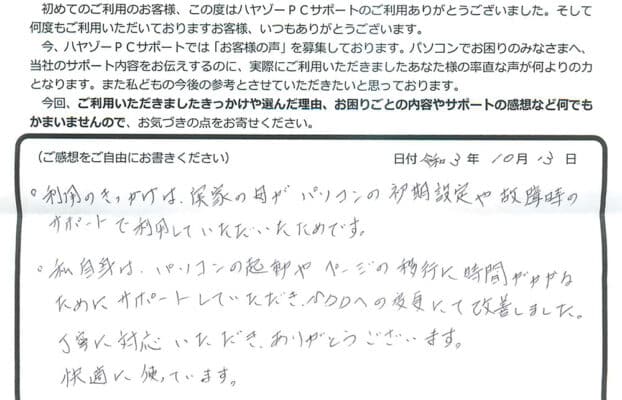 初めてのご利用のお客様、この度はハヤゾーPCサポートのご利用ありがとうございました。そして
何度もご利用いただいておりますお客様、いつもありがとうございます。
今、ハヤゾーPCサポートでは「お客様の声」を募集しております。パソコンでお困りのみなさまへ、
当社のサポート内容をお伝えするのに、実際にご利用いただきましたあなた様の率直な声が何よりの力
となります。また私どもの今後の参考とさせていただきたいと思っております。
今回、ご利用いただきましたきっかけや選んだ理由、お困りごとの内容やサポートの感想など何でも
かまいませんので、お気づきの点をお寄せください。
(ご感想をご自由にお書きください) 日付 令和3年 10月 13日
。利用のきっかけは、実家の母がパソコンの初期設定や故障時の
サポートで利用していただいたためです。
。私自身は、パソコンの起動やページの移行に時間がかかる
ためにサポートしていただき、SDDへの変更にて改善しました。
丁寧に対応いただき、ありがとうございます。
快適に使っています。